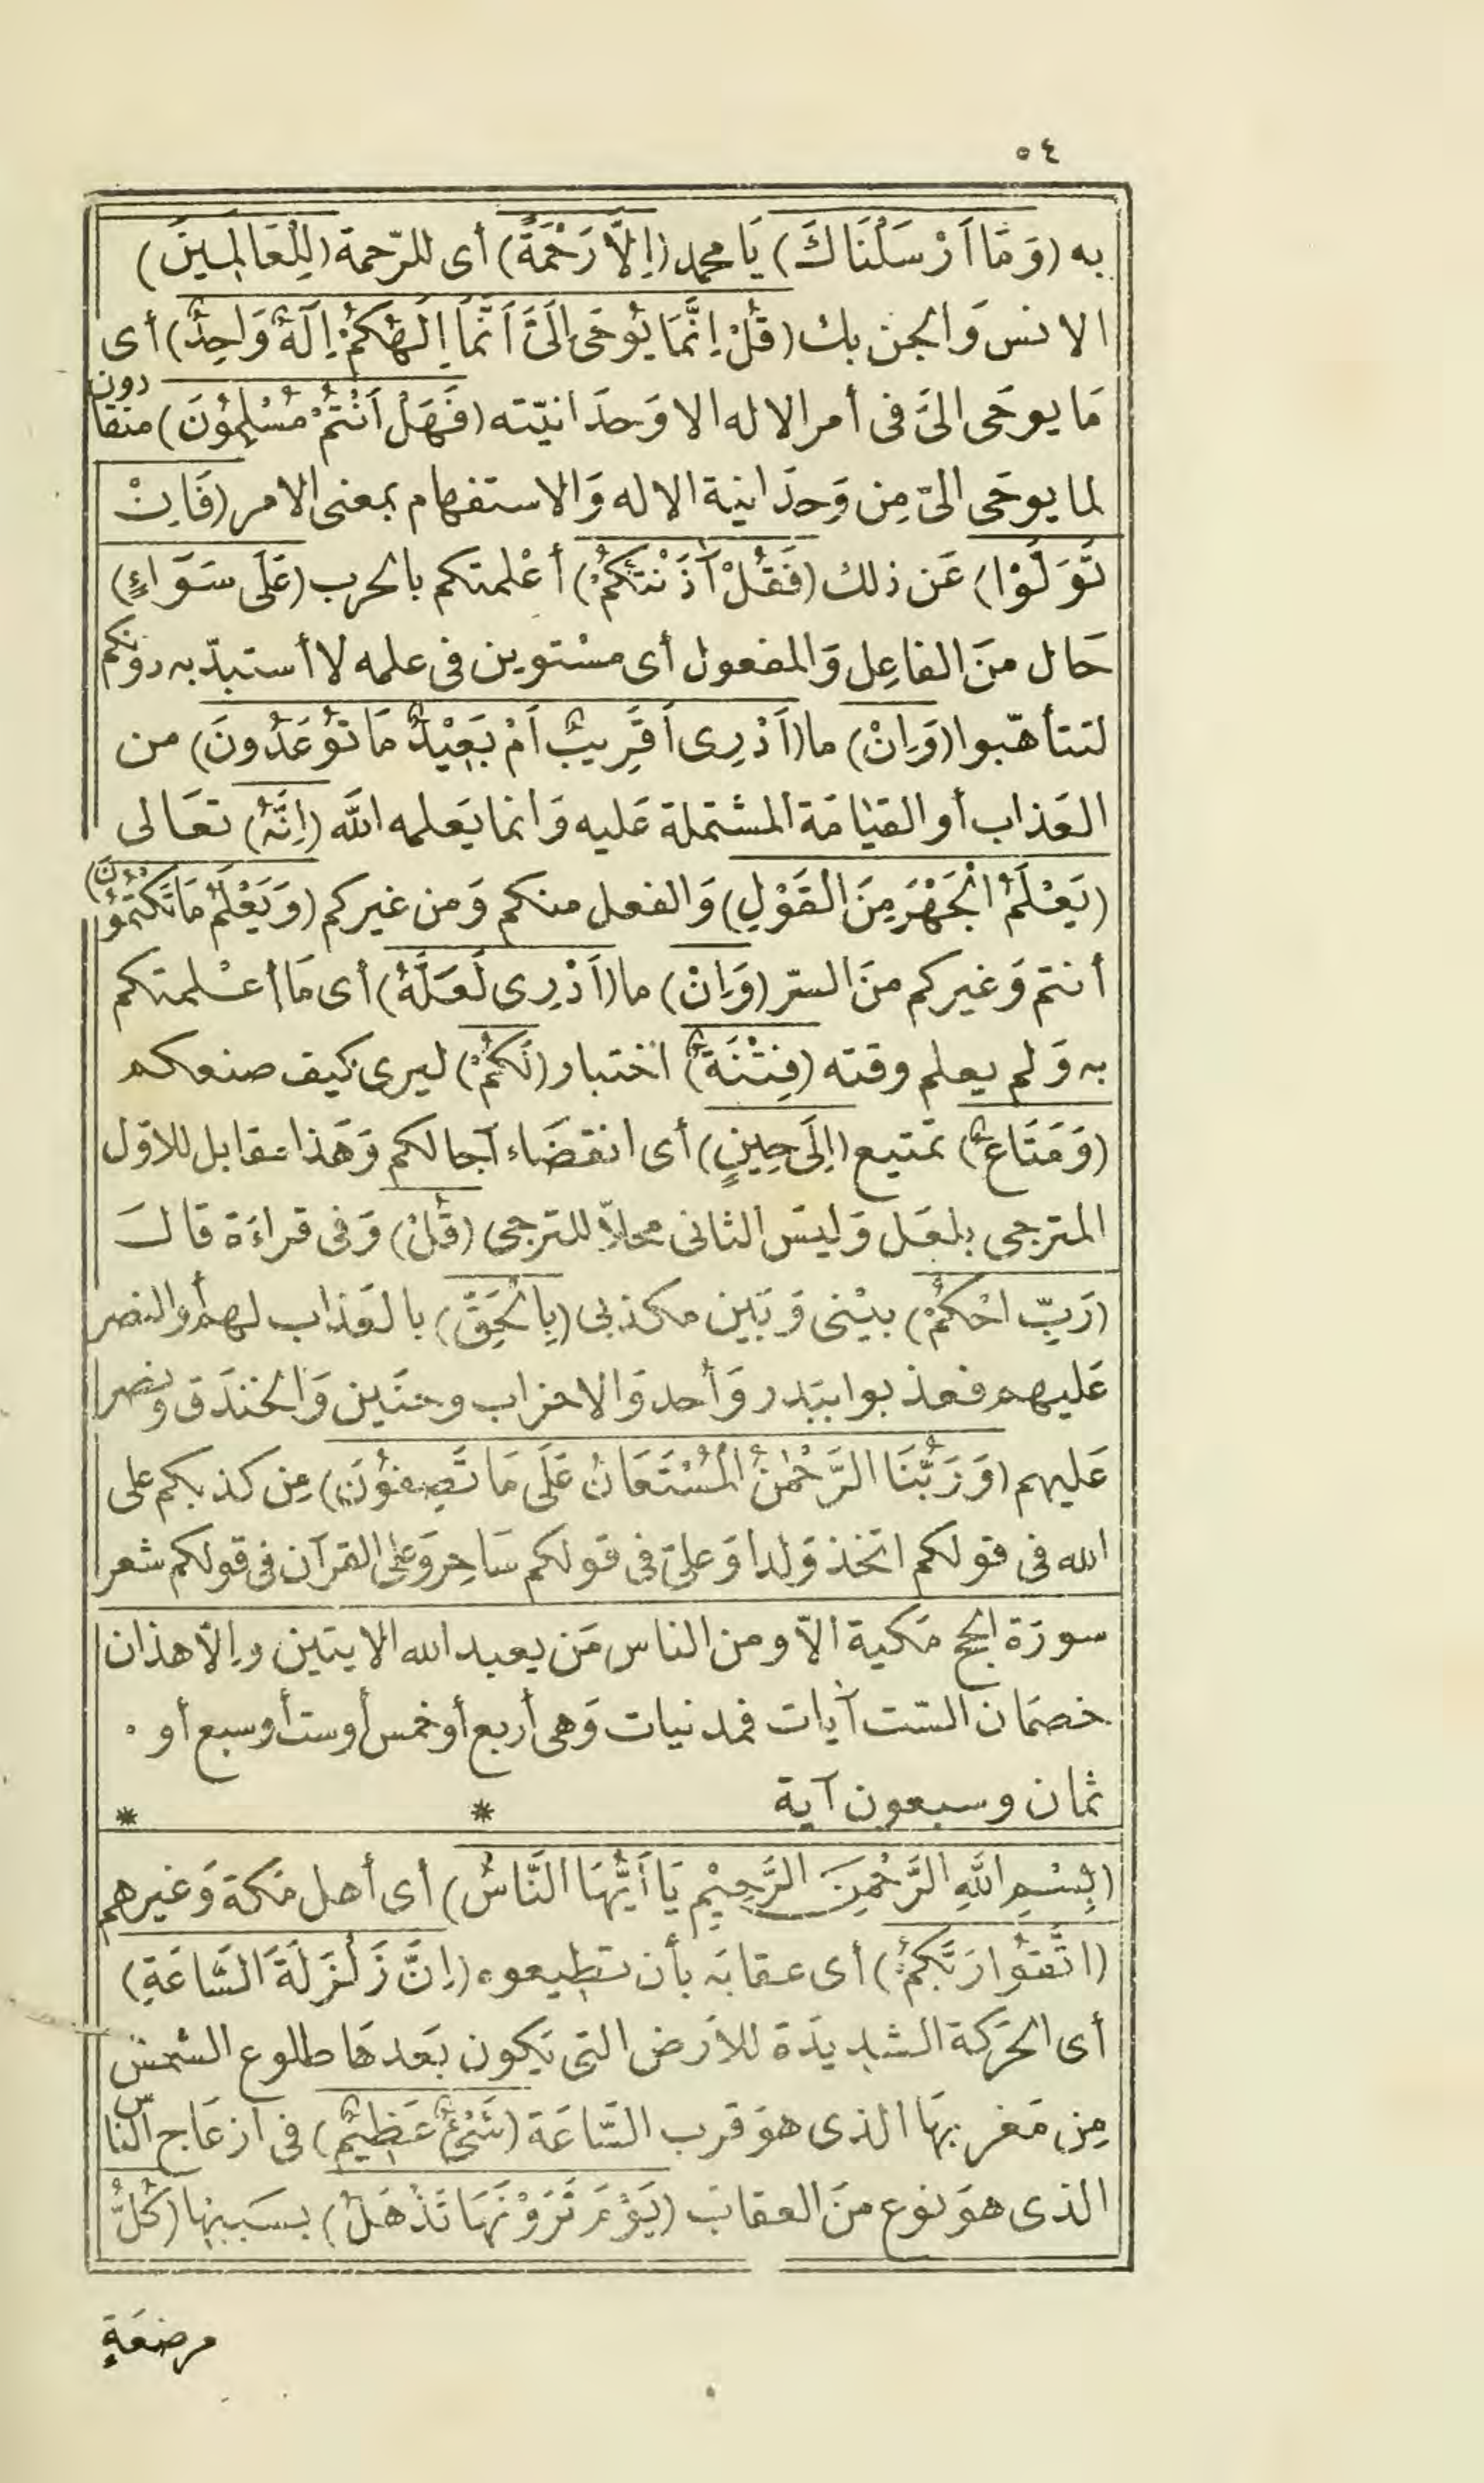 ٥٤
به (وَمَا اَرْسَلْنَاكَ) يَا محمد (اِلَّا رَحْمَةً) أى للرّحمة (لِلْعَالَمِينَ)
الانس وَالجن بك (قُلْ اِنَّمَا يُوحَى اِلَىَّ اَنَّمَا اِلَهُكُمْ اِلَهٌ وَاحِدٌ) أى
مَا يوحَى الىَّ فى أمر الاله الا وَحدَانيّته (فَهَلْ اَنْتُمْ مُسْلِمُونَ) منقادون
لما يوحَى الىّ مِن وَحدَانية الاله وَالاستفهام بمعنى الامر (فَاِنْ
تَوَلَّوْا) عَن ذلك (فَقُلْ آذَنْتُكُمْ) أعْلمتكم بالحرب (عَلَى سَوَاءٍ)
حَال منَ الفاعِل وَالمفعول أى مسْتوين فى علمه لا أستبدّ به دونكم
لتتأهّبوا (وَاِنْ) ما (اَدْرِى اَقَرِيبٌ اَمْ بَعِيْدٌ مَا تُوعَدُونَ) من
العَذاب أو القيَامَة المشتملة عَليه وَانما يَعلمه اللَّه (اِنَّهُ) تعَالى
(يَعْلَمُ الْجَهْرَ مِنَ الْقَوْلِ) وَالفعل منكم وَمن غيركم (وَيَعْلَمُ مَا تَكْتُمُونَ)
أنتم وَغيركم منَ السّر (وَاِنْ) ما (اَدْرِى لَعَلَّهُ) أى مَا أعْلمتكم
به وَلم يعلم وقته (فِتْنَةٌ) اختبار (لَكُمْ) ليرى كيف صنعكم
(وَمَتَاعٌ) تمتيع (اِلَى حِينٍ) أى انقضَاء آجالكم وَهَذا مقابل للاوّل
المترجى بلعَل وَليسَ الثانى محلاّ للترجى (قُلْ) وَفى قراءَة قالَ
(رَبِّ احْكُمْ) بينْى وَبَين مكذبى (بِالْحَقِّ) بالعَذاب لهم أو النصر
عَليهم فعذبوا ببَدر وَأحد وَالاحزاب وحنَين وَالخندَق ونصر
عَليهم (وَرَبُّنَا الرَّحْمٰنُ الْمُسْتَعَانُ عَلَى مَا تَصِفُونَ) مِن كذبكم على
الله فى قولكم اتخذ وَلدا وَعلىّ فى قولكم سَاحِر وَعلى القرآن فى قولكم شعر
سورَة الحج مَكية الاّ ومن الناس مَن يعبد الله الايتين وإلاّ هذان
خصمَان السّت آيات فمدنيات وَهى أربع أو خمس أو ست أو سبع أو
ثمان وسبعون آية * *
(بِسْمِ اللَّهِ الرَّحْمٰنِ الرَّحِيْمِ يَا اَيُّهَا النَّاسُ) أى أهل مَكة وَغيرهم
(اتَّقُوا رَبَّكُمْ) أى عقابَه بأن تطيعوه (اِنَّ زَلْزَلَةَ السَّاعَةِ)
أى الحَرَكة الشديدَة للاَرض التى يَكون بَعدهَا طلوع الشمسْ
مِن مَغربهَا الذى هوَ قرب السَّاعَة (شَىْءٌ عَظِيمٌ) فى ازعَاج النّاس
الذى هوَ نوع منَ العقاب (يَوْمَ تَرَوْنَهَا تَذْهَلُ) بسَببهَا (كُلُّ
مرضعَةٍ